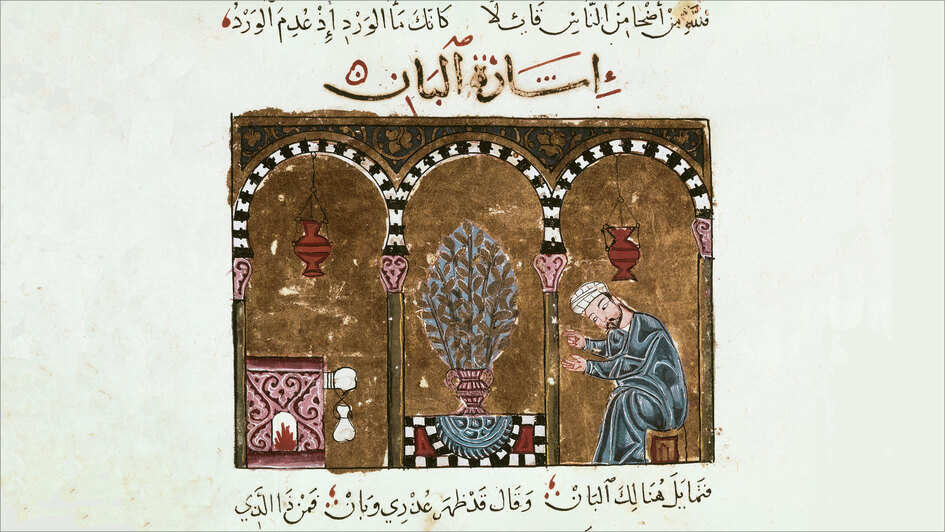 فلله من أضحا من النَّاسِ قائلا كانك مَا الوَرْدِ إذْ عُدِمَ الوَرْدُ
إشارة البَان
فتمايل هنالك البَانْ وَقَال قَدْ ظَهَر عُذْري وبَانْ فَمَنْ ذَا الَّذي